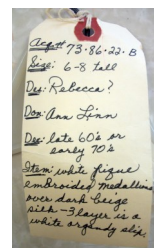 Acq# 73.86.22.B
Size: 6-8 tall
Des: Rebecca?
Don: Ann Linn
Dec: late 60's or
early 70's
Item: white piqué
embroided medallions
over dark beige
silk - 3 layer is a
white organdy slip.